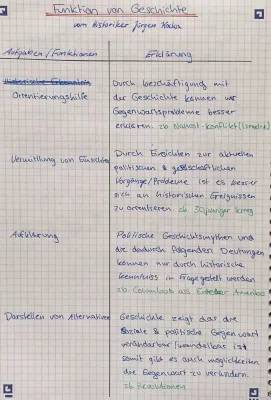 Funktion von Geschichte
vom Historiker Jürgen Kocka
Aufgaben / Funktionen
Erklärung
Historische Erkenntnis
Orientierungshilfe
Durch Beschäftigung mit
der Geschichte können wir
Gegenwartsprobleme besser
erklären. zb Nahost-Konflikt (Israel
Vermittlung von Einsichten
Durch Einsichten zur aktuellen
politischen & gesellschaftlichen
Vorgänge/Probleme ist es besser
sich an historischen Ereignissen
zu orientieren. zb 30 jähriger Krieg
Aufklärung
Politische Geschichtsmythen und
die dadurch folgenden Deutungen
können nur durch historische
Kenntniss in Frage gestellt werden
zb Columbus als Entdecker Amerikas
Darstellen von Alternativen
Geschichte zeigt das die
soziale & politische Gegenwart
veränderbar/wandelbar ist
somit gibt es auch möglichkeiten
die Gegenwart zu verändern.
zb Revolutionen